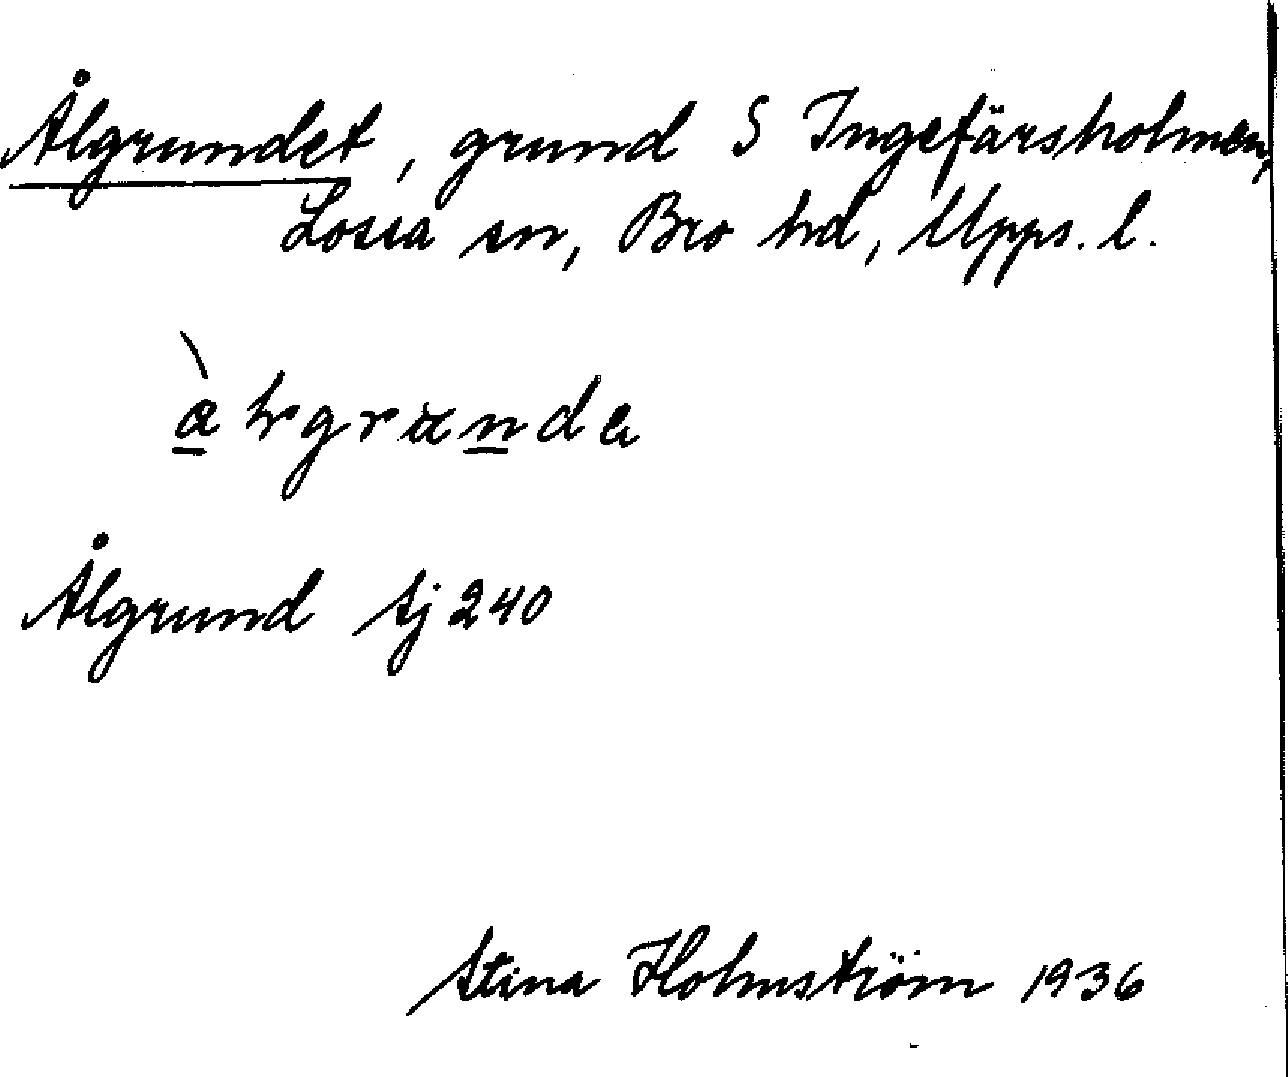 Ålgrundet, grund S Ingefärsholmen,
Lossa sn, Bro hd, Upps. l.
Ålgrund Sj 240
Stina Holmström 1936